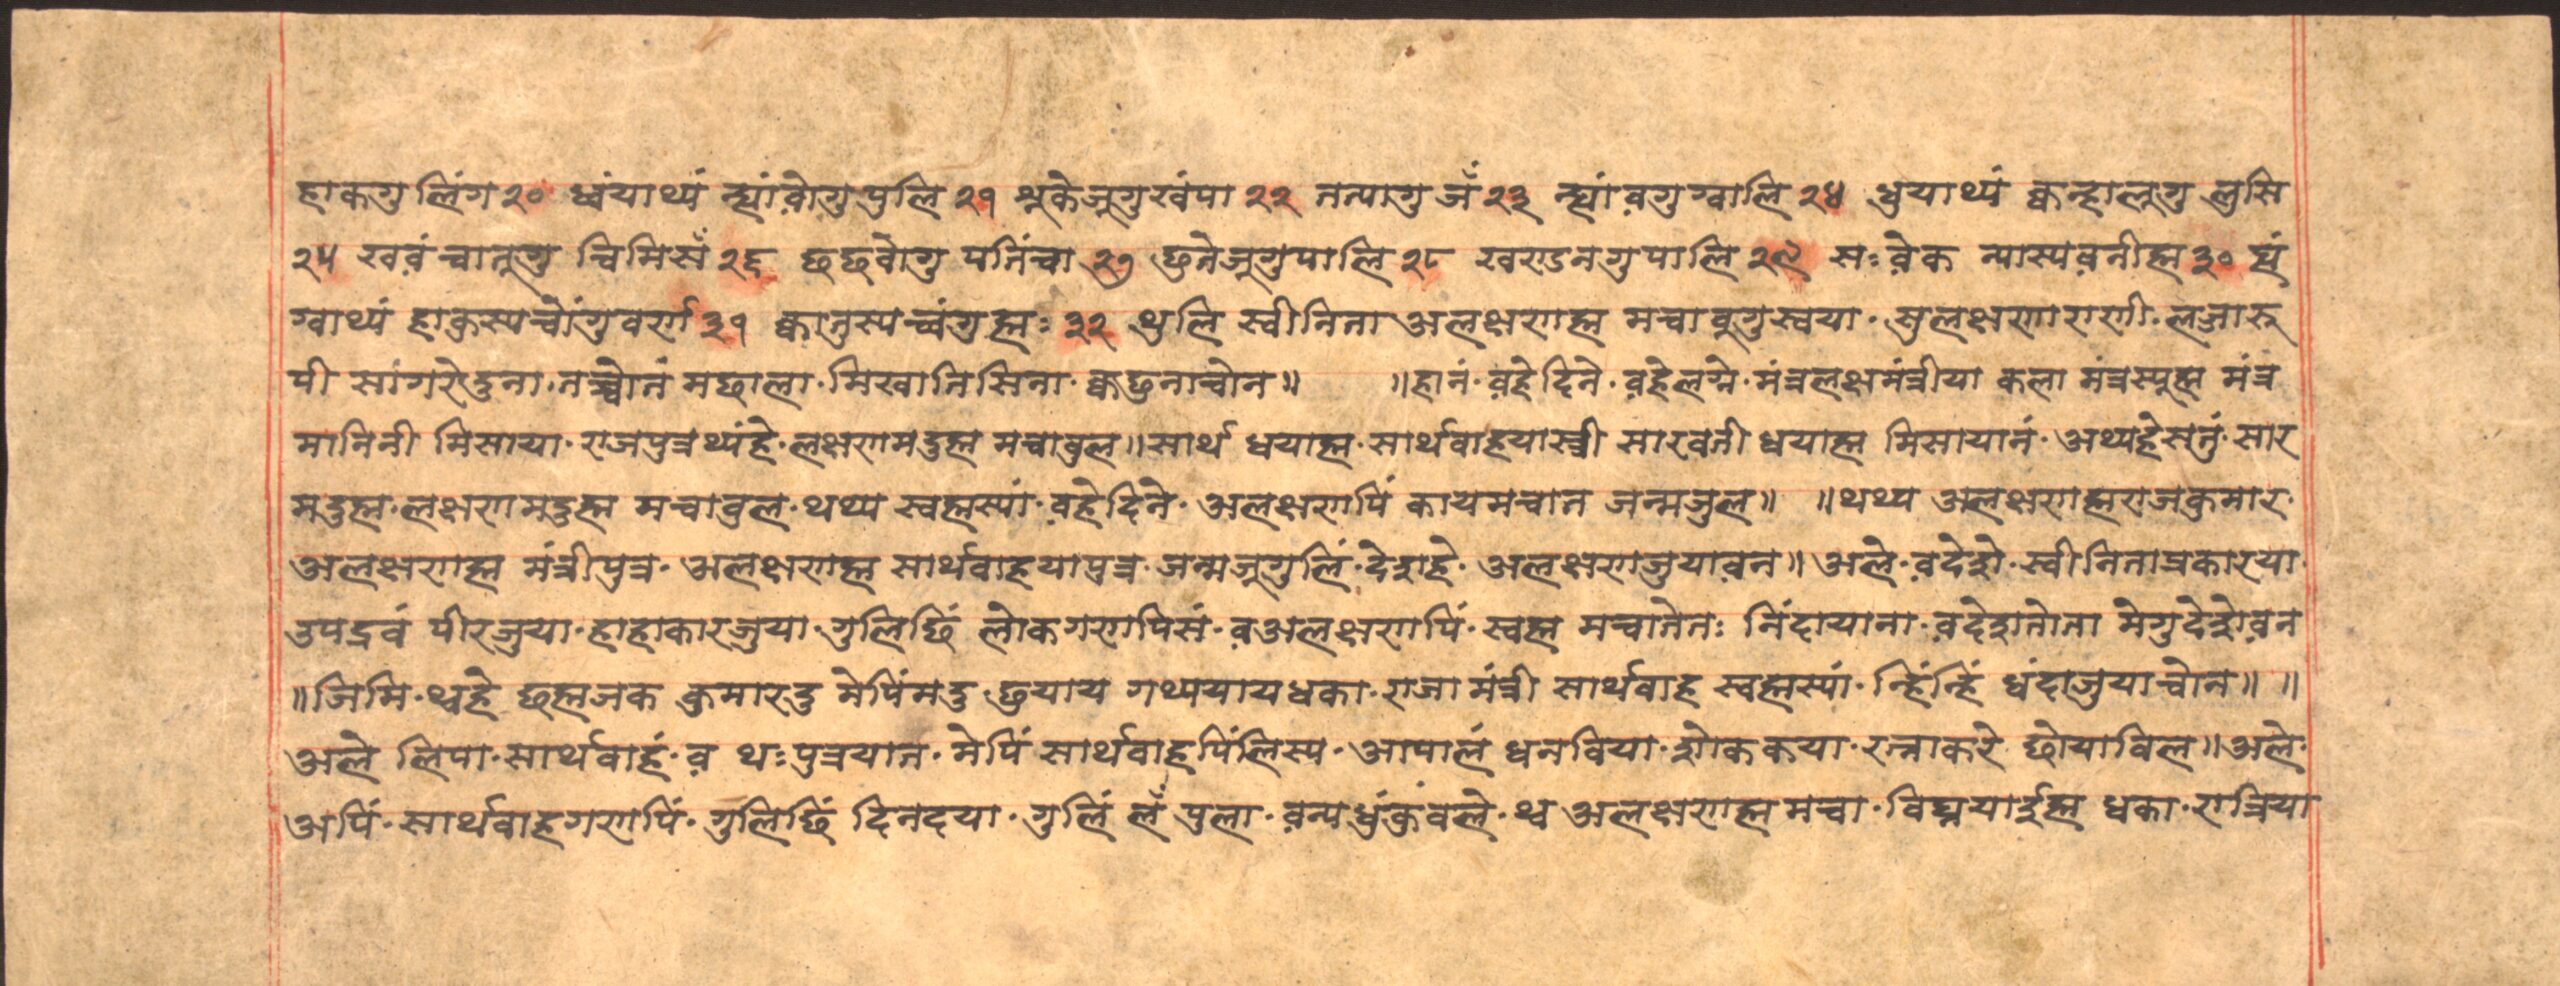 हाकगु लिंग २० ध्वंयाथ्यं न्ह्यांवोगु पुलि २१ भ्रूकेजूगु खंपा २२ तत्पागु जँ २३ न्ह्यांवगु ग्वालि २४ धुयाथ्यं क्वन्हालूगु लुसि
२५ खवंच्वातूगु चिमिसँ २६ छछवोगु पतिंचा २७ छुतेजूगु पालि २८ खण्डनगु पालि २९ सः वेक न्यास्यवनीह्म ३० घं
ग्वाथ्यं हाकुस्यच्वोंगु वर्ण ३१ क्वातुस्यच्वंगुह्मः ३२ थुलि स्वीनिता अलक्षणह्म मचा बूगु स्वया॰ सुलक्षणा राणी॰ लज्जारू
पी सांगरेदुना॰ तच्वोतं मछाला॰ मिखातिसिना॰ क्वछुनाच्वोन॥ ॥हानं॰ वहे दिने॰ वहे लग्ने॰ मंत्रलक्षमंत्रीया कला मंत्रस्यूह्म मंत्र
मानिनी मिसाया॰ राजपुत्रथ्यंहे॰ लक्षणमदुह्म मचाबुल॥सार्थ धयाह्म॰ सार्थवाहयास्त्री सारवती धयाह्म मिसायानं॰ अथ्यहेसतुं॰ सार
मदुह्म॰ लक्षणमदुह्म मचाबुल॰ थथ्य स्वह्मस्यां॰ वहेदिने॰ अलक्षणपिं कायमचात जन्मजुल॥ ॥थथ्य अलक्षणह्मराजकुमार॰
अलक्षणह्म मंत्रीपुत्र॰ अलक्षणह्म सार्थवाहयापुत्र॰ जन्मजूगुलिं॰ देशहे॰ अलक्षणजुयावन॥ अले॰ वदेशे॰ स्वीनिताप्रकारया॰
उपद्रवं पीरजुया॰ हाहाकारजुया॰ गुलिछिं लोकगणपिसं॰ वअलक्षणपिं॰ स्वह्म मचातेतः निंदायाना॰ वदेशतोता मेगुदेशेवन
॥जिमि॰ थ्वहे छह्मजक कुमारदु मेपिंमदु छुयाय गथ्ययायधका॰ राजा मंत्री सार्थवाह स्वह्मस्यां॰ न्हिंन्हिं ध्वंदाजुयाच्वोन॥ ॥
अले लिपा॰ सार्थवाहं॰ व थः पुत्रयात॰ मेपिं सार्थवाहपिंलिस्य॰ आपालं धनबिया॰ शोककया॰ रत्नाकरे छोयाबिल॥अले॰
अपिं॰ सार्थवाहगणपिं॰ गुलिछिं दिनदया॰ गुलिं लँ पुला॰ वन्यधुंकुंवले॰ थ्व अलक्षणह्ममचा॰ विघ्नयाईह्म धका॰ रात्रिया